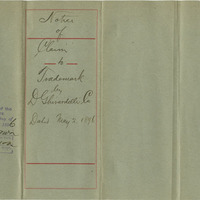 Notice
of
Claim
to
Trademark
by
D. Ghirardelli Co
Dated May 2, 1896